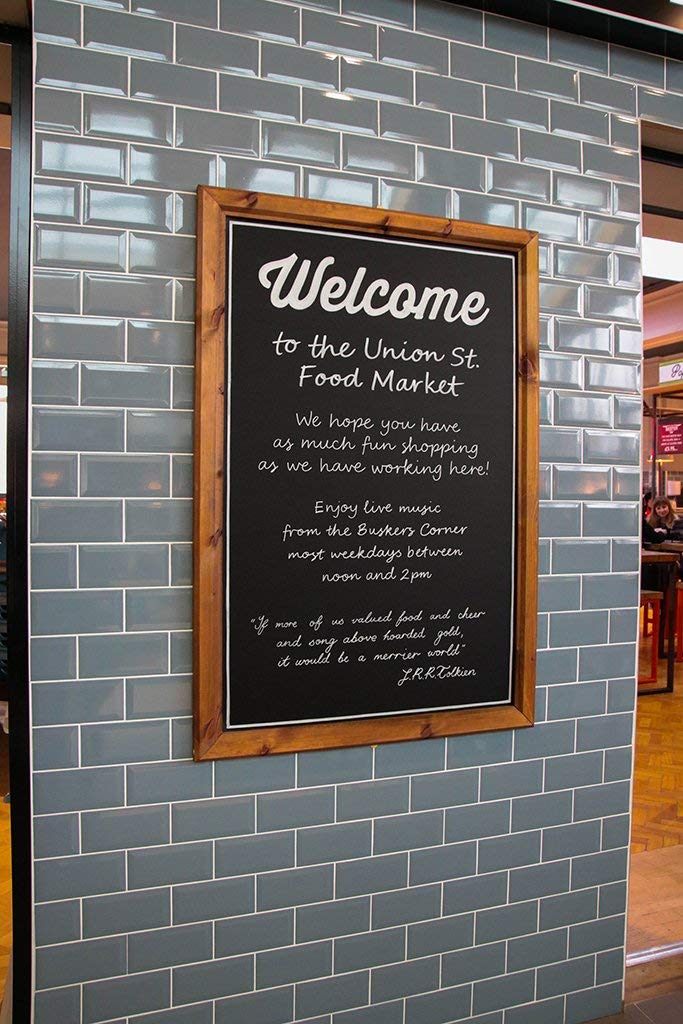 Welcome
to the Union St.
Food Market
We hope you have
as much fun shopping
as we have working here!
Enjoy live music
from the Buskers Corner
most weekdays between
noon and 2pm
"If more of us valued food and cheer
and song above hoarded gold,
it would be a merrier world"
J.R.R.Tolkien